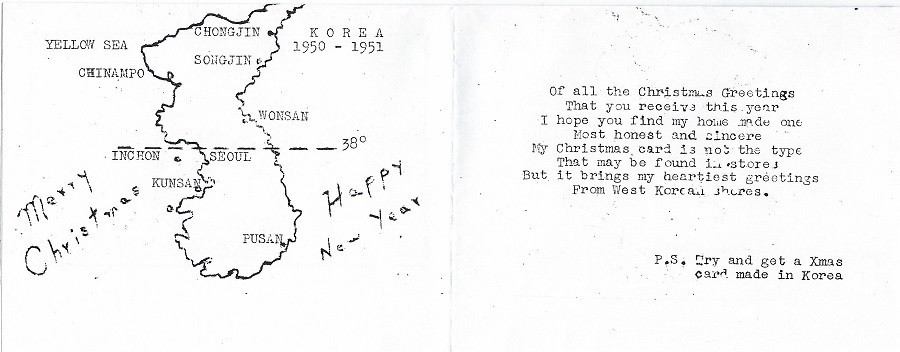 CHONGJIN
K O R E A
1950 - 1951
YELLOW SEA
SONGJIN
CHINAMPO
WONSAN
38°
INCHON
SEOUL
KUNSAN
PUSAN
Merry
Christmas
Happy
New Year
Of all the Christmas Greetings
That you receive this year
I hope you find my home made one
Most honest and sincere
My Christmas card is not the type
That may be found in stores
But it brings my heartiest greetings
From West Korean shores.
P.S. Try and get a Xmas
card made in Korea